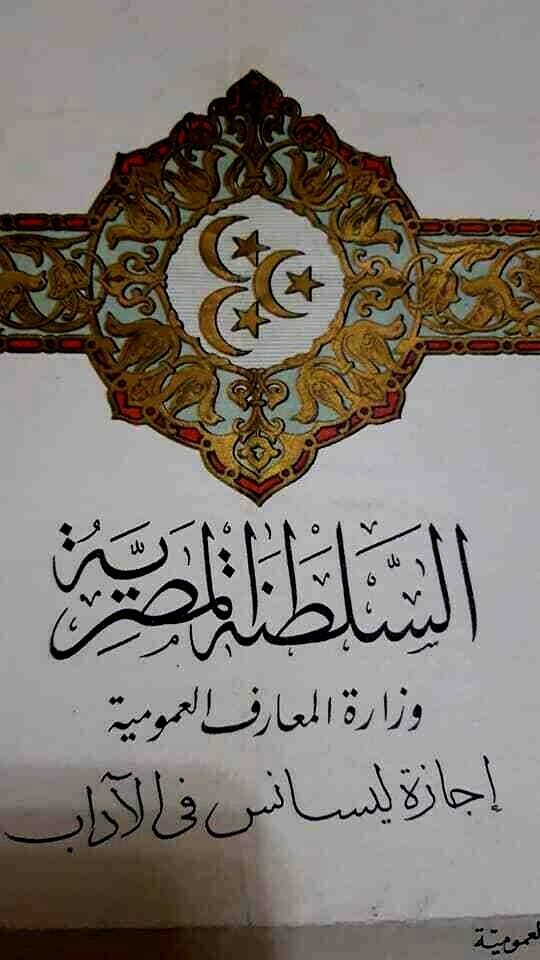 السَّلطنة المصريَّة
وزارة المعارف العمومية
إجازة ليسانس فى الآداب
العمومية